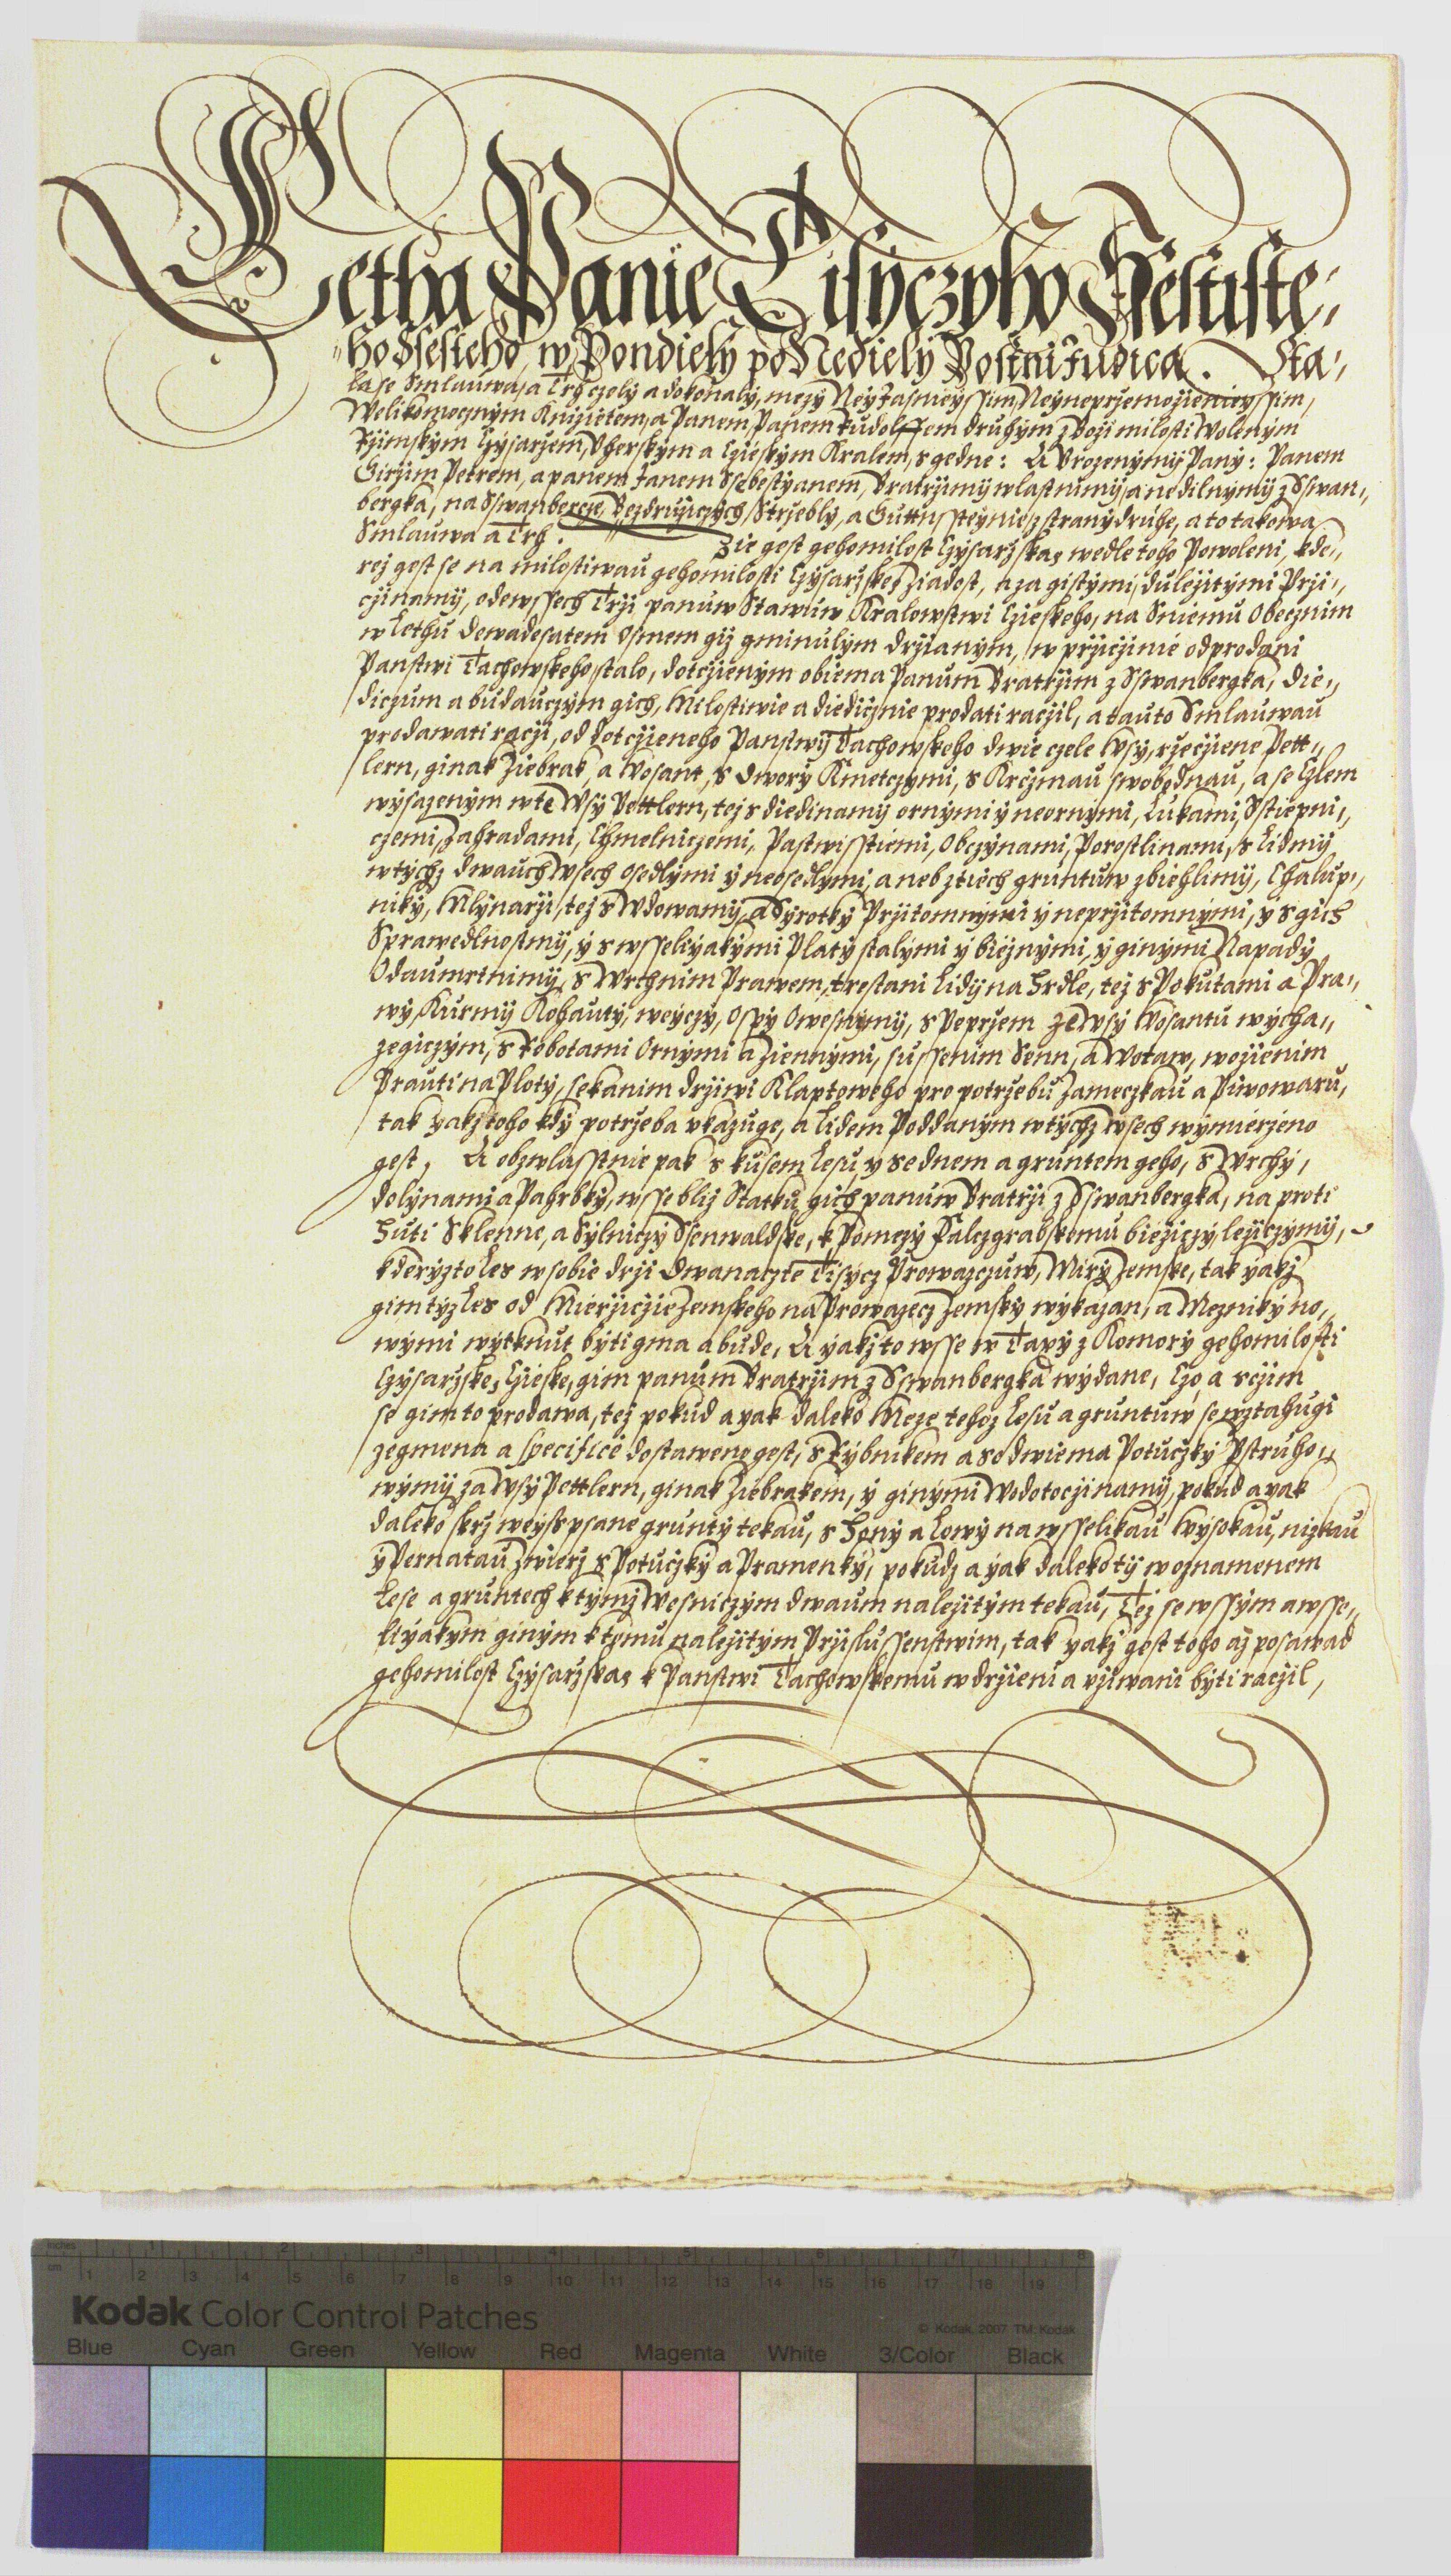 Letha Panie Tisyczyho Ssestiste„
ho Ssesteho, w Pondiely po Nediely Postni Judica. Sta„
la se Smlauwa, a Trh czely a dokonaly, mezy Neyjasniegssim, Neyneprzemozieniegssim,
Welikomocznym Knizietem, a Panem Panem Rudolffem druhym z Bozi milosti Wolenym
Rzimskym Czysarzem, Uherskym a Czieskym Kralem, s gedne: A Urozenymi Pany: Panem
Girzim Petrem, a panem Janem Ssebestyanem, Bratrzimy wlastnimy, a nedilnymy z Sswan„
bergka, na Sswanbercze, Bezdruzyczych, Strzebly, a Guttnssteynie, z strany druhe, a to takowa
Smlauwa a Trh. Zie gest gehomilost Czysarzskaꝫ wedle toho Powoleni, kde„
rez gest se na milostiwau gehomilosti Czysarzskeꝫ Ziadost, a za gistymi, dulezitymi Przi„
czinamy, odewssech Trzi panuw Stawuw Kralowstwi Czieskeho, na Sniemu Obecznim
w Lethu dewadesatem Osmem giz gminulym drzianym, w prziczinie odprodani
Panstwi Tachowskeho stalo, dotczienym obiema Panum Bratrzim z Sswanbergka, die„
diczum a budauczym gich, Milostiwie a diedicznie prodati raczil, a tauto Smlauwau
prodawati raczi, od dotczieneho Panstwy Tachowskeho dwie czele Wsy, rzeczene Pett„
lern, ginak Ziebrak, a Wosant, s dwory Kmetczymi, s Krczmau swobodnau, a se Czlem
wysazenym w te Wsy Pettlern, tez s diedinamy ornymi y neornymi, Lukami, Sstiepni„
czemi, Zahradami, Chmelniczemi, Pastwisstiemi, Obczynami, Porostlinami, s Lidmy
w tychz dwauch Wsech osedlymi y neosedlymi, aneb z tiech gruntuw zbiehlimy, Chalup„
niky, Mlynarzi, tez s Wdowamy, a Syrotky Przitomnymi y neprzitomnymi, y s gich
Sprawedlnostmy, y s wsselijakymi Platy stalymi y biėznymi, y ginymi Napady
Odaumrtnimy, s Wrchnim Prawem, trestani Lidy na Hrdle, tez s Pokutami a Pra„
wy, Kurmy Kohauty, weyczy, Ospy Owesnymy, s Peprzem ze Wsy Wosantu wycha„
zegiczym, s Robotami Ornymi a Ziennymi, sussenim Senn, a Wotaw, wozienim
Prauti na Ploty, sekanim drziwi Klaptoweho pro potrzebu Zameczkau a Piwowaru,
tak yakz toho kdy potrzeba ukazuge, a Lidem Poddanym w tychz Wsech wymierzeno
gest, A obzwlasstnie pak s kusem Lesu, y se dnem a gruntem geho, s Wrchy,
dolynami a Pahrbky, wsse bliz Statku gich panuw Bratrzi z Sswanbergka, na proti
Huti Sklenne, a Sylniczy Ssenwaldske, k Pomezy Falczgrabskemu biezyczy, lezyczymy,
kderyzto Les w sobie drzi Dwanaczte Tisycz Prowazczuw, Miry Zemske, tak yakz
gim tyz Les od Mierzicie Zemskeho na Prowazecz Zemsky wykazan, a Mezniky no„
wymi wytknut byti gma a bude, A yakzto wsse w Taxy z Komory gehomilosti
Czysarzskeꝫ Czieske, gim panum Bratrzim z Sswanbergka wydane, Czo, a sczim
se gim to prodawa, tez pokud a yak daleko Meze tehoz Lesu a gruntuw se wztahugi
zegmena a specificė dostaweno gest, s Rybnikem a se dwiema Potuczky Pstruho„
wymy, za Wsy Pettlern, ginak Ziebrakem, y ginymi Wodotoczinamy, pokud a yak
daleko skrz weyss psane grunty tekau, s Hony a Lowy na wsselikau Wysokau, nizkau
y Pernatau Zwierz s Potuczky a Pramenky, pokudz a yak daleko ty w oznamenem
Lese a gruntech k tymz Wesniczym dwaum nalezitym tekau, Tez se wssym a wsse„
liyakym ginym k tomu nalezitym Przislussenstwim, tak yakz gest toho az posawad
gehomilost Czysarzskaꝫ k Panstwi Tachowskemu w drzieni a uziwani byti raczil,
inches 1 2 3 4 5 6 7 8
cm 1 2 3 4 5 6 7 8 9 10 11 12 13 14 15 16 17 18 19
Kodak Color Control Patches
© Kodak, 2007 TM: Kodak
Blue Cyan Green Yellow Red Magenta White 3/Color Black